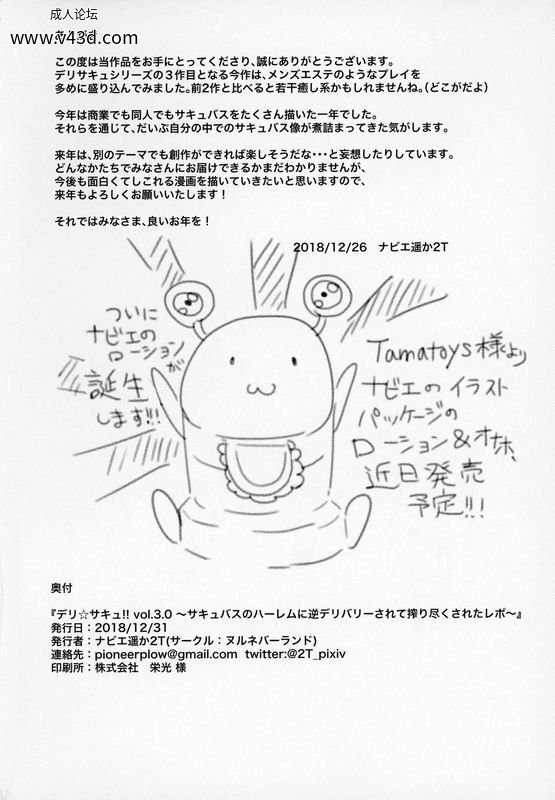 成人论坛
www.v43d.com
この度は当作品をお手にとってくださり、誠にありがとうございます。
デリサキュシリーズの３作目となる今作は、メンズエステのようなプレイを
多めに盛り込んでみました。前2作と比べると若干癒し系かもしれませんね。（どこがだよ）
今年は商業でも同人でもサキュバスをたくさん描いた一年でした。
それらを通じて、だいぶ自分の中でのサキュバス像が煮詰まってきた気がします。
来年は、別のテーマでも創作ができれば楽しそうだな・・・と妄想したりしています。
どんなかたちでみなさんにお届けできるかまだわかりませんが、
今後も面白くてしこれる漫画を描いていきたいと思いますので、
来年もよろしくお願いいたします！
それではみなさま、良いお年を！
2018/12/26　ナビエ遥か2T
ついに
ナビエの
ローションが
誕生
します!!!
Tamatoys様より
ナビエのイラスト
パッケージの
ローション&オナホ、
近日発売
予定!!!
奥付
『デリ☆サキュ!! vol.3.0 〜サキュバスのハーレムに逆デリバリーされて搾り尽くされたレポ〜』
発行日：2018/12/31
発行者：ナビエ遥か2T(サークル：ヌルネバーランド)
連絡先：pioneerplow@gmail.com twitter:@2T_pixiv
印刷所：株式会社　栄光 様